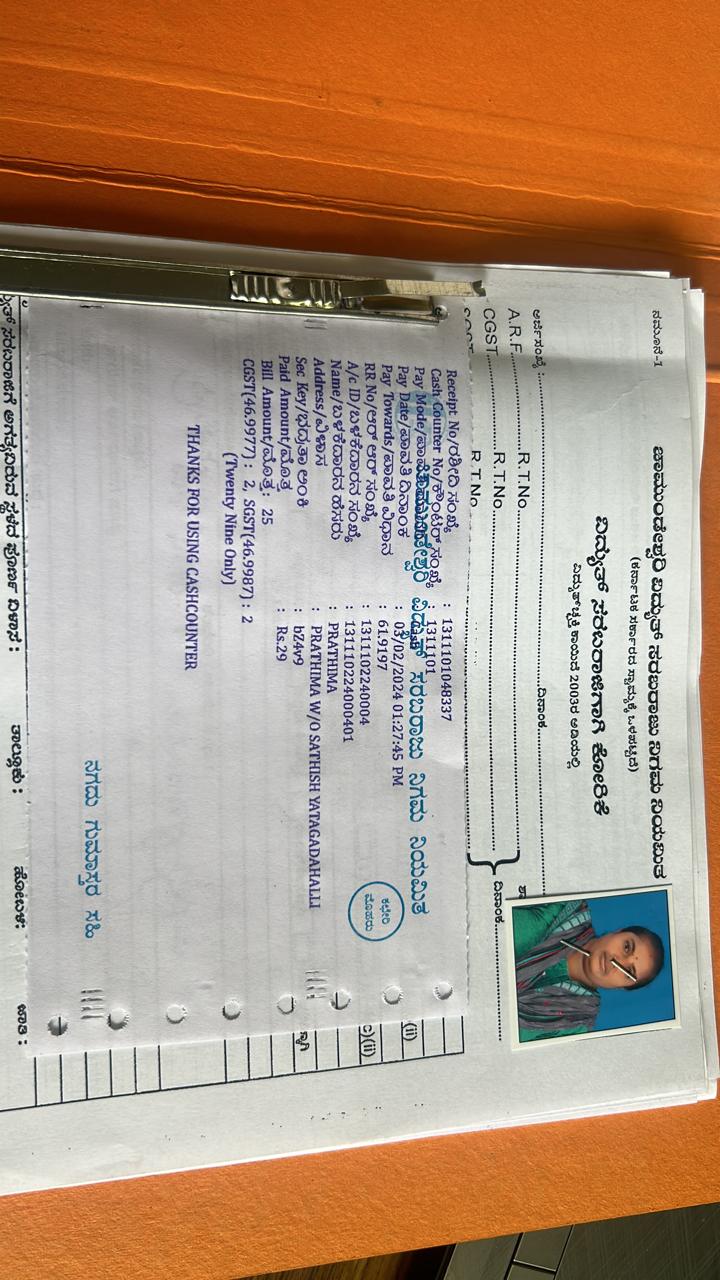 ನಮೂನೆ-1
ಚಾಮುಂಡೇಶ್ವರಿ ವಿದ್ಯುತ್ ಸರಬರಾಜು ನಿಗಮ ನಿಯಮಿತ
(ಕರ್ನಾಟಕ ಸರ್ಕಾರದ ಸ್ವಾಮ್ಯಕ್ಕೆ ಒಳಪಟ್ಟಿದೆ)
ವಿದ್ಯುತ್ ಸರಬರಾಜಿಗಾಗಿ ಕೋರಿಕೆ
ವಿದ್ಯುಚ್ಛಕ್ತಿ ಕಾಯಿದೆ 2003ರ ಅಡಿಯಲ್ಲಿ
ಅರ್ಜಿಸಂಖ್ಯೆ ........ ದಿನಾಂಕ........
A.R.F........ R.T.No........
CGST........ R.T.No........ ದಿನಾಂಕ........
SGST R.T.No........
ಚಾಮುಂಡೇಶ್ವರಿ ವಿದ್ಯುತ್ ಸರಬರಾಜು ನಿಗಮ ನಿಯಮಿತ
Receipt No/ರಶೀದಿ ಸಂಖ್ಯೆ : 1311101048337
Cash Counter No/ಕೌಂಟರ್ ಸಂಖ್ಯೆ : 1311101
Pay Mode/ಪಾವತಿ : Cash
Pay Date/ಪಾವತಿ ದಿನಾಂಕ : 03/02/2024 01:27:45 PM
Pay Towards/ಪಾವತಿ ವಿಧಾನ : 61.9197
RR No/ಆರ್ ಆರ್ ಸಂಖ್ಯೆ : 1311102240004
A/c ID/ಬಳಕೆದಾರರ ಸಂಖ್ಯೆ : 1311102224000401
Name/ಬಳಕೆದಾರರ ಹೆಸರು : PRATHIMA
Address/ವಿಳಾಸ : PRATHIMA W/O SATHISH YATAGADAHALLI
Sec Key/ಭದ್ರತಾ ಅಂಕಿ : bZ4v9
Paid Amount/ಮೊತ್ತ : Rs.29
Bill Amount/ಮೊತ್ತ: 25
CGST(46.9977) : 2, SGST(46.9987) : 2
(Twenty Nine Only)
THANKS FOR USING CASHCOUNTER
ಕಛೇರಿ
ಮೊಹರು
ನಗದು ಗುಮಾಸ್ತರ ಸಹಿ
(ii)
c)(ii)
ವಿದ್ಯುತ್ ಸರಬರಾಜಿಗೆ ಅಗತ್ಯವಿರುವ ಸ್ಥಳದ ಪೂರ್ಣ ವಿಳಾಸ :
ತಾಲ್ಲೂಕು : ಹೋಬಳಿ: